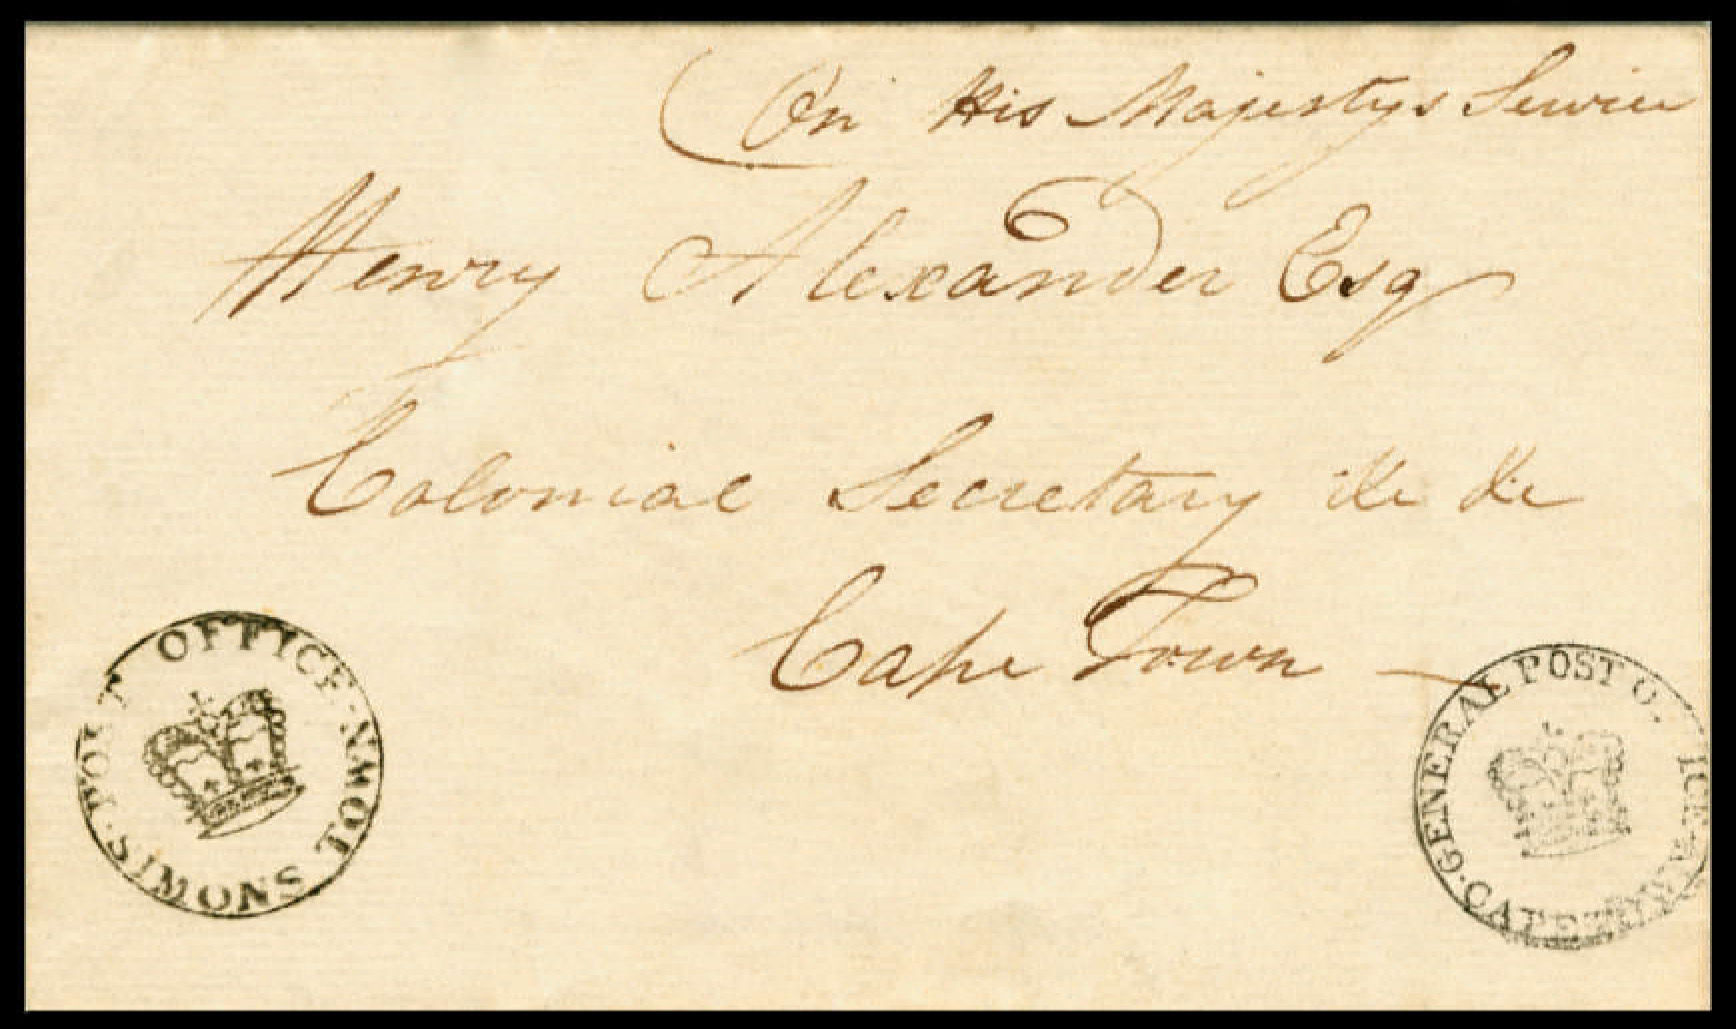 On His Majestys Service
Henry Alexander Esq
Colonial Secretary &c &c
Cape Town
POST OFFICE · SIMONS TOWN ·
GENERAL POST OFFICE · CAPE TOWN ·